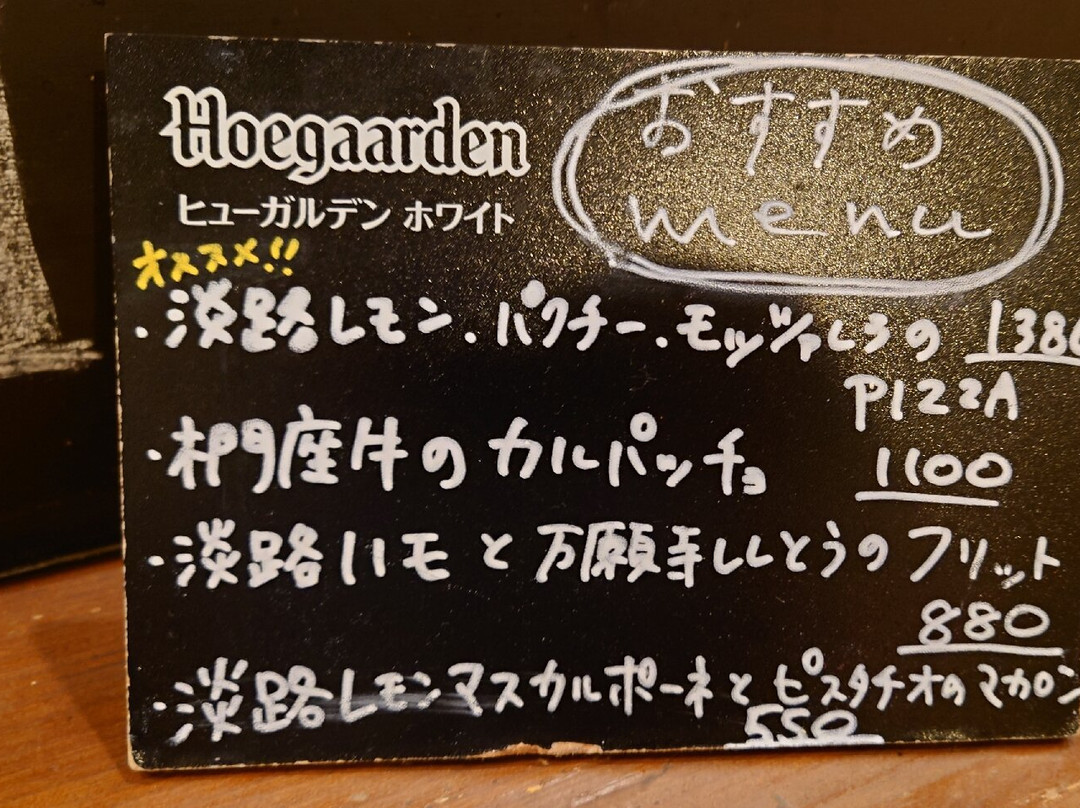 Hoegaarden
ヒューガルデン ホワイト
おすすめ
menu
オススメ!!
・淡路レモン・パクチー・モッツァレラの 1380
PIZZA
・椚座牛のカルパッチョ 1100
・淡路ハモと万願寺ししとうのフリット
880
・淡路レモンマスカルポーネとピスタチオのマカロン
550